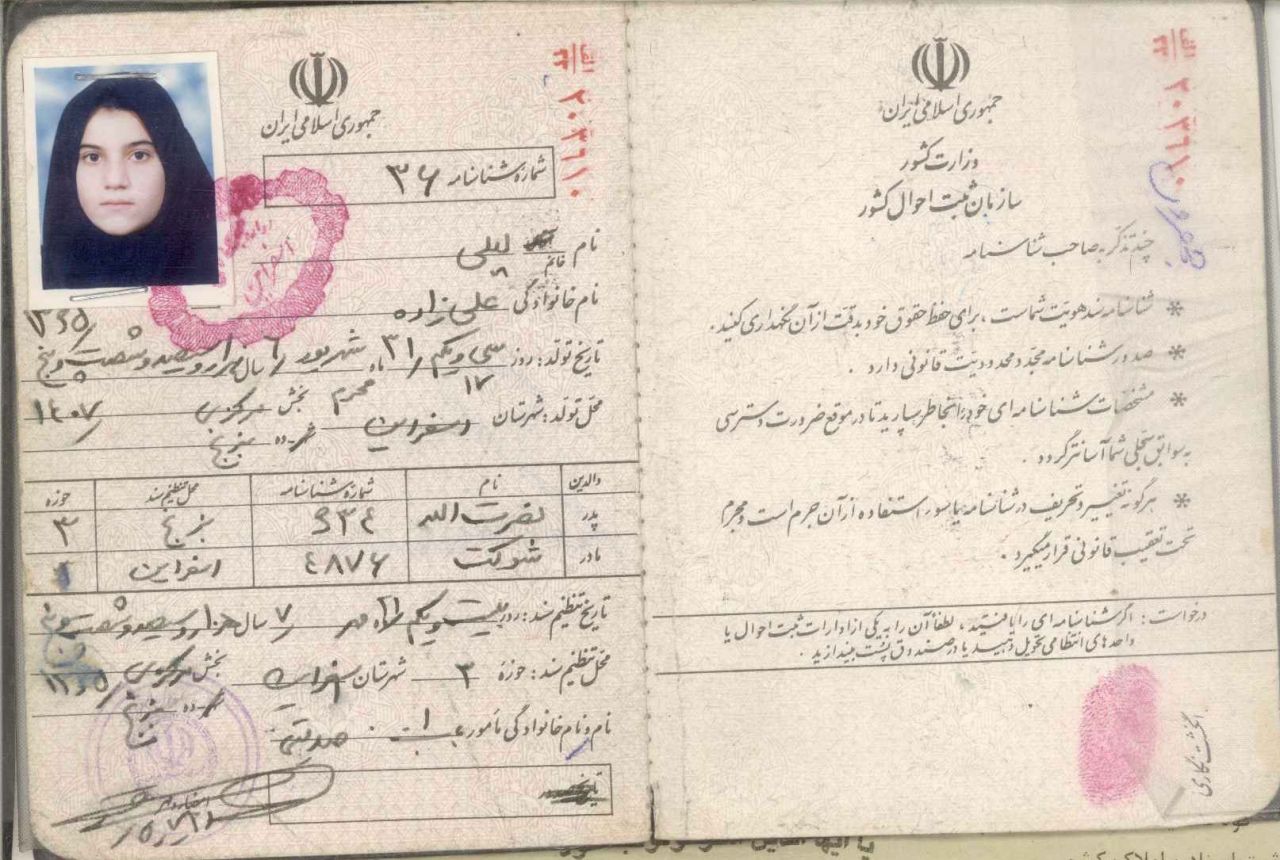 جمهوری اسلامی ایران
شماره شناسنامه ۳۶
نام خانم لیلی
نام خانوادگی علی زاده
۱۳۶۵/
تاریخ تولد: روز سی و یکم ۳۱/ ماه شهریور ۶/ سال هزار و سیصد و شصت و پنج
۱۷ محرم ۱۴۰۷/
محل تولد: شهرستان اسفراین بخش مرکزی
ده
والدین نام شماره شناسنامه محل تنظیم سند حوزه
پدر نصرت الله ۹۳۴ ۳
مادر شوکت ۴۸۷۶ اسفراین
تاریخ تنظیم سند: روز بیست و یکم ۲۱/ ماه مهر ۷/ سال هزار و سیصد و شصت و پنج
۱۳۶۵/
محل تنظیم سند: حوزه ۳ شهرستان اسفراین بخش مرکزی
ده
نام و نام خانوادگی مأمور
اسفراین
الف
۳۳
۲۰۳۶۱۰
جمهوری اسلامی ایران
وزارت کشور
سازمان ثبت احوال کشور
چند تذکر به صاحب شناسنامه
* شناسنامه سند هویت شماست ، برای حفظ حقوق خود بدقت از آن نگهداری کنید .
* صدور شناسنامه مجدد محدودیت قانونی دارد .
* مشخصات شناسنامه ای خود را بخاطر بسپارید تا در موقع ضرورت دسترسی
به سوابق سجلی شما آسانتر گردد .
* هرگونه تغییر و تحریف در شناسنامه یا سوء استفاده از آن جرم است و مجرم
تحت تعقیب قانونی قرار میگیرد .
درخواست : اگر شناسنامه ای را یافتید ، لطفاً آن را به یکی از ادارات ثبت احوال یا
واحدهای انتظامی تحویل دهید یا در صندوق پست بیندازید .
الف
۳۳
۲۰۳۶۱۰
انگشت نگاری